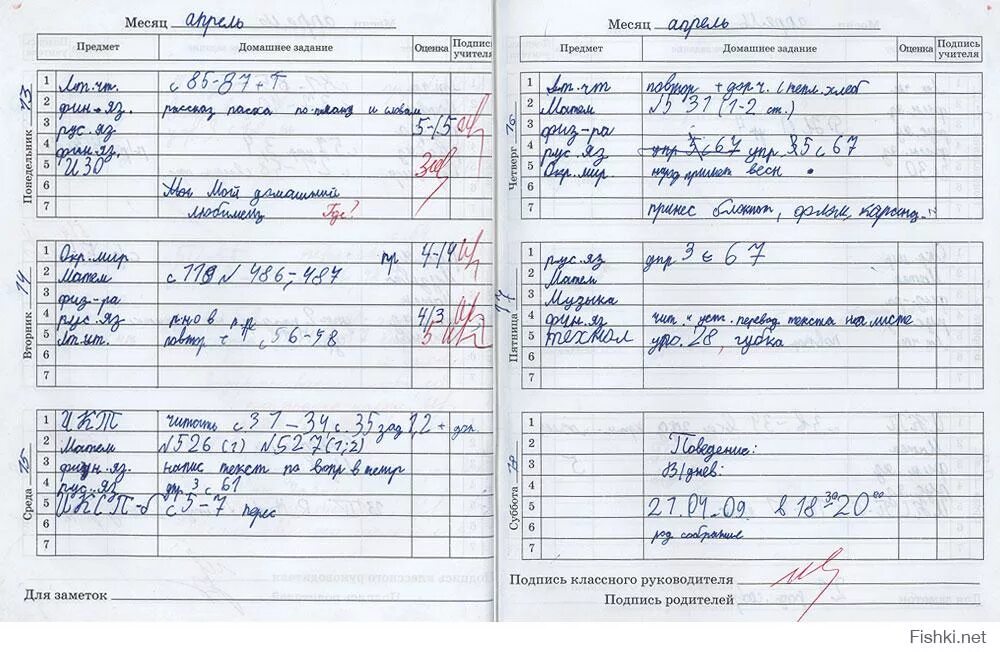 Месяц апрель
Предмет Домашнее задание Оценка Подпись учителя
Понедельник 13
1 Лит.чт. с 85-87 + Т
2 фин.яз. рассказ пасха по плану и словам
3 рус.яз 5-1.5
4 фин.яз.
5 ИЗО
6 Мой домашний
7 любимец Где?
Вторник 14
1 Окр.мир пр 4-14
2 Матем с 119 № 486-487
3 физ-ра
4 рус.яз 4/3
5 Лит.чт. повтор с 56-48 5
6
7
Среда 15
1 ИКТ читать с 31-34 с. 35 зад 1,2 + доп.
2 Матем № 526 (1) № 527 (1,2)
3 финн.яз. напис текст по вопр в тетр
4 рус.яз упр 3 с 61
5 с 5-7 перес
6
7
Для заметок
Месяц апрель
Предмет Домашнее задание Оценка Подпись учителя
Четверг 16
1 Лит.чт хлеб
2 Матем № 5 31 (1-2 ст.)
3 физ-ра
4 рус.яз упр 5 с 67 упр 35 с 67
5 Окр.мир. весн
6
7 принес блокнот, карандаш
Пятница 17
1 рус.яз упр 3 с 67
2 Матем
3 Музыка
4 финн.яз чит. и уст. перевод текста на листе
5 28, губка
6
7
Суббота 18
1
2 Поведение:
3 В/днев:
4
5 21.04.09. в 18 30 20 00
6
7 род собрание
Подпись классного руководителя
Подпись родителей
Fishki.net